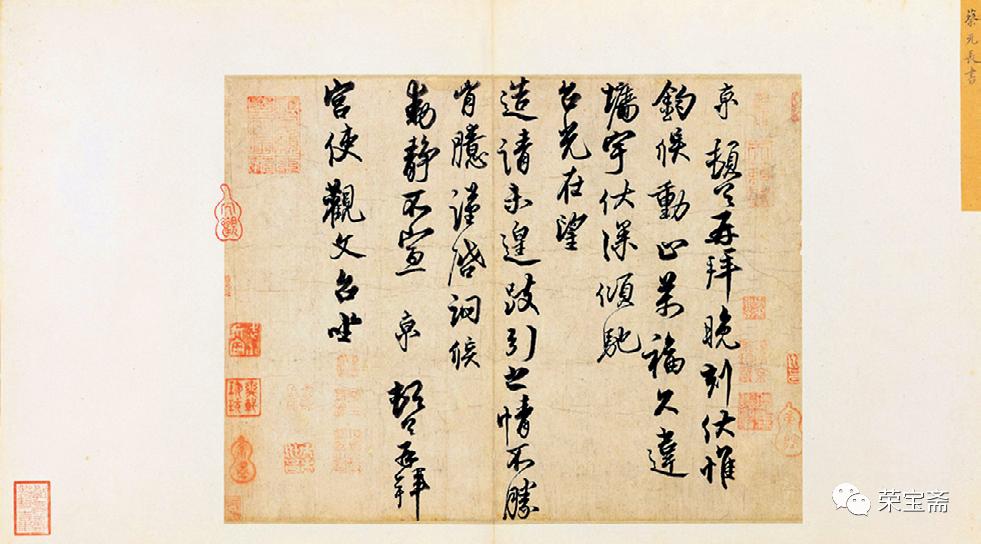 蔡元長書
京頓首再拜晚刻伏惟
鈞候動止萬福久違
牆宇伏深傾馳
台光在望
造請未遑跂引之情不勝
胷臆謹啓詞候
動靜不宣京頓首再拜
宫使觀文台坐
荣宝斋